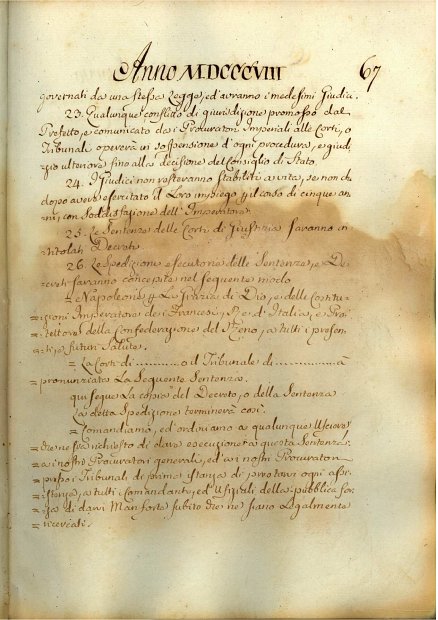 Anno MDCCCVIII 67
governati da una stessa Legge, ed avranno i medesimi Giudici.
23. Qualunque conflitto di giurisdizione promosso dal
Prefetto, e comunicato dai Procuratori Imperiali alle Corti, o
Tribunali opererà la sospensione d'ogni procedura, e giudi-
zio ulteriore fino alla decisione del Consiglio di Stato.
24. I Giudici non resteranno Stabiliti a vita, se non che
dopo avere esercitato il Loro impiego pel corso di cinque an-
ni, con Soddisfazione dell' Imperatore.
25. Le Sentenze delle Corti di Giustizia saranno in-
titolate Decreti
26. Le Spedizioni esecutone delle Sentenze, e De-
creti saranno concepite nel seguente modo
= Napoleone La Grazia di Dio, e delle Costitu-
= zioni Imperatore dei Francesi, Re d'Italia, e Pro-
= tettore della Confederazione del Reno, a tutti i presen-
= ti, e futuri Salute.
= La Corte di ............ o il Tribunale di ............ à
= pronunziato La Seguente Sentenza.
qui segue La copia del Decreto, o della Sentenza
La detta Spedizione terminerà così.
= Comandiamo, ed ordiniamo a qualunque Usciere
= che ne sarà richiesto di dare esecuzione a questa Sentenza:
= ai nostri Procuratori generali, ed ai nostri Procuratori
= presso i Tribunali di prima istanza di prestarvi ogni assi-
= stenza, a tutti i Comandanti, ed Ufiziali della pubblica for-
= za di darvi Man forte subito che ne siano Legalmente
= ricercati.